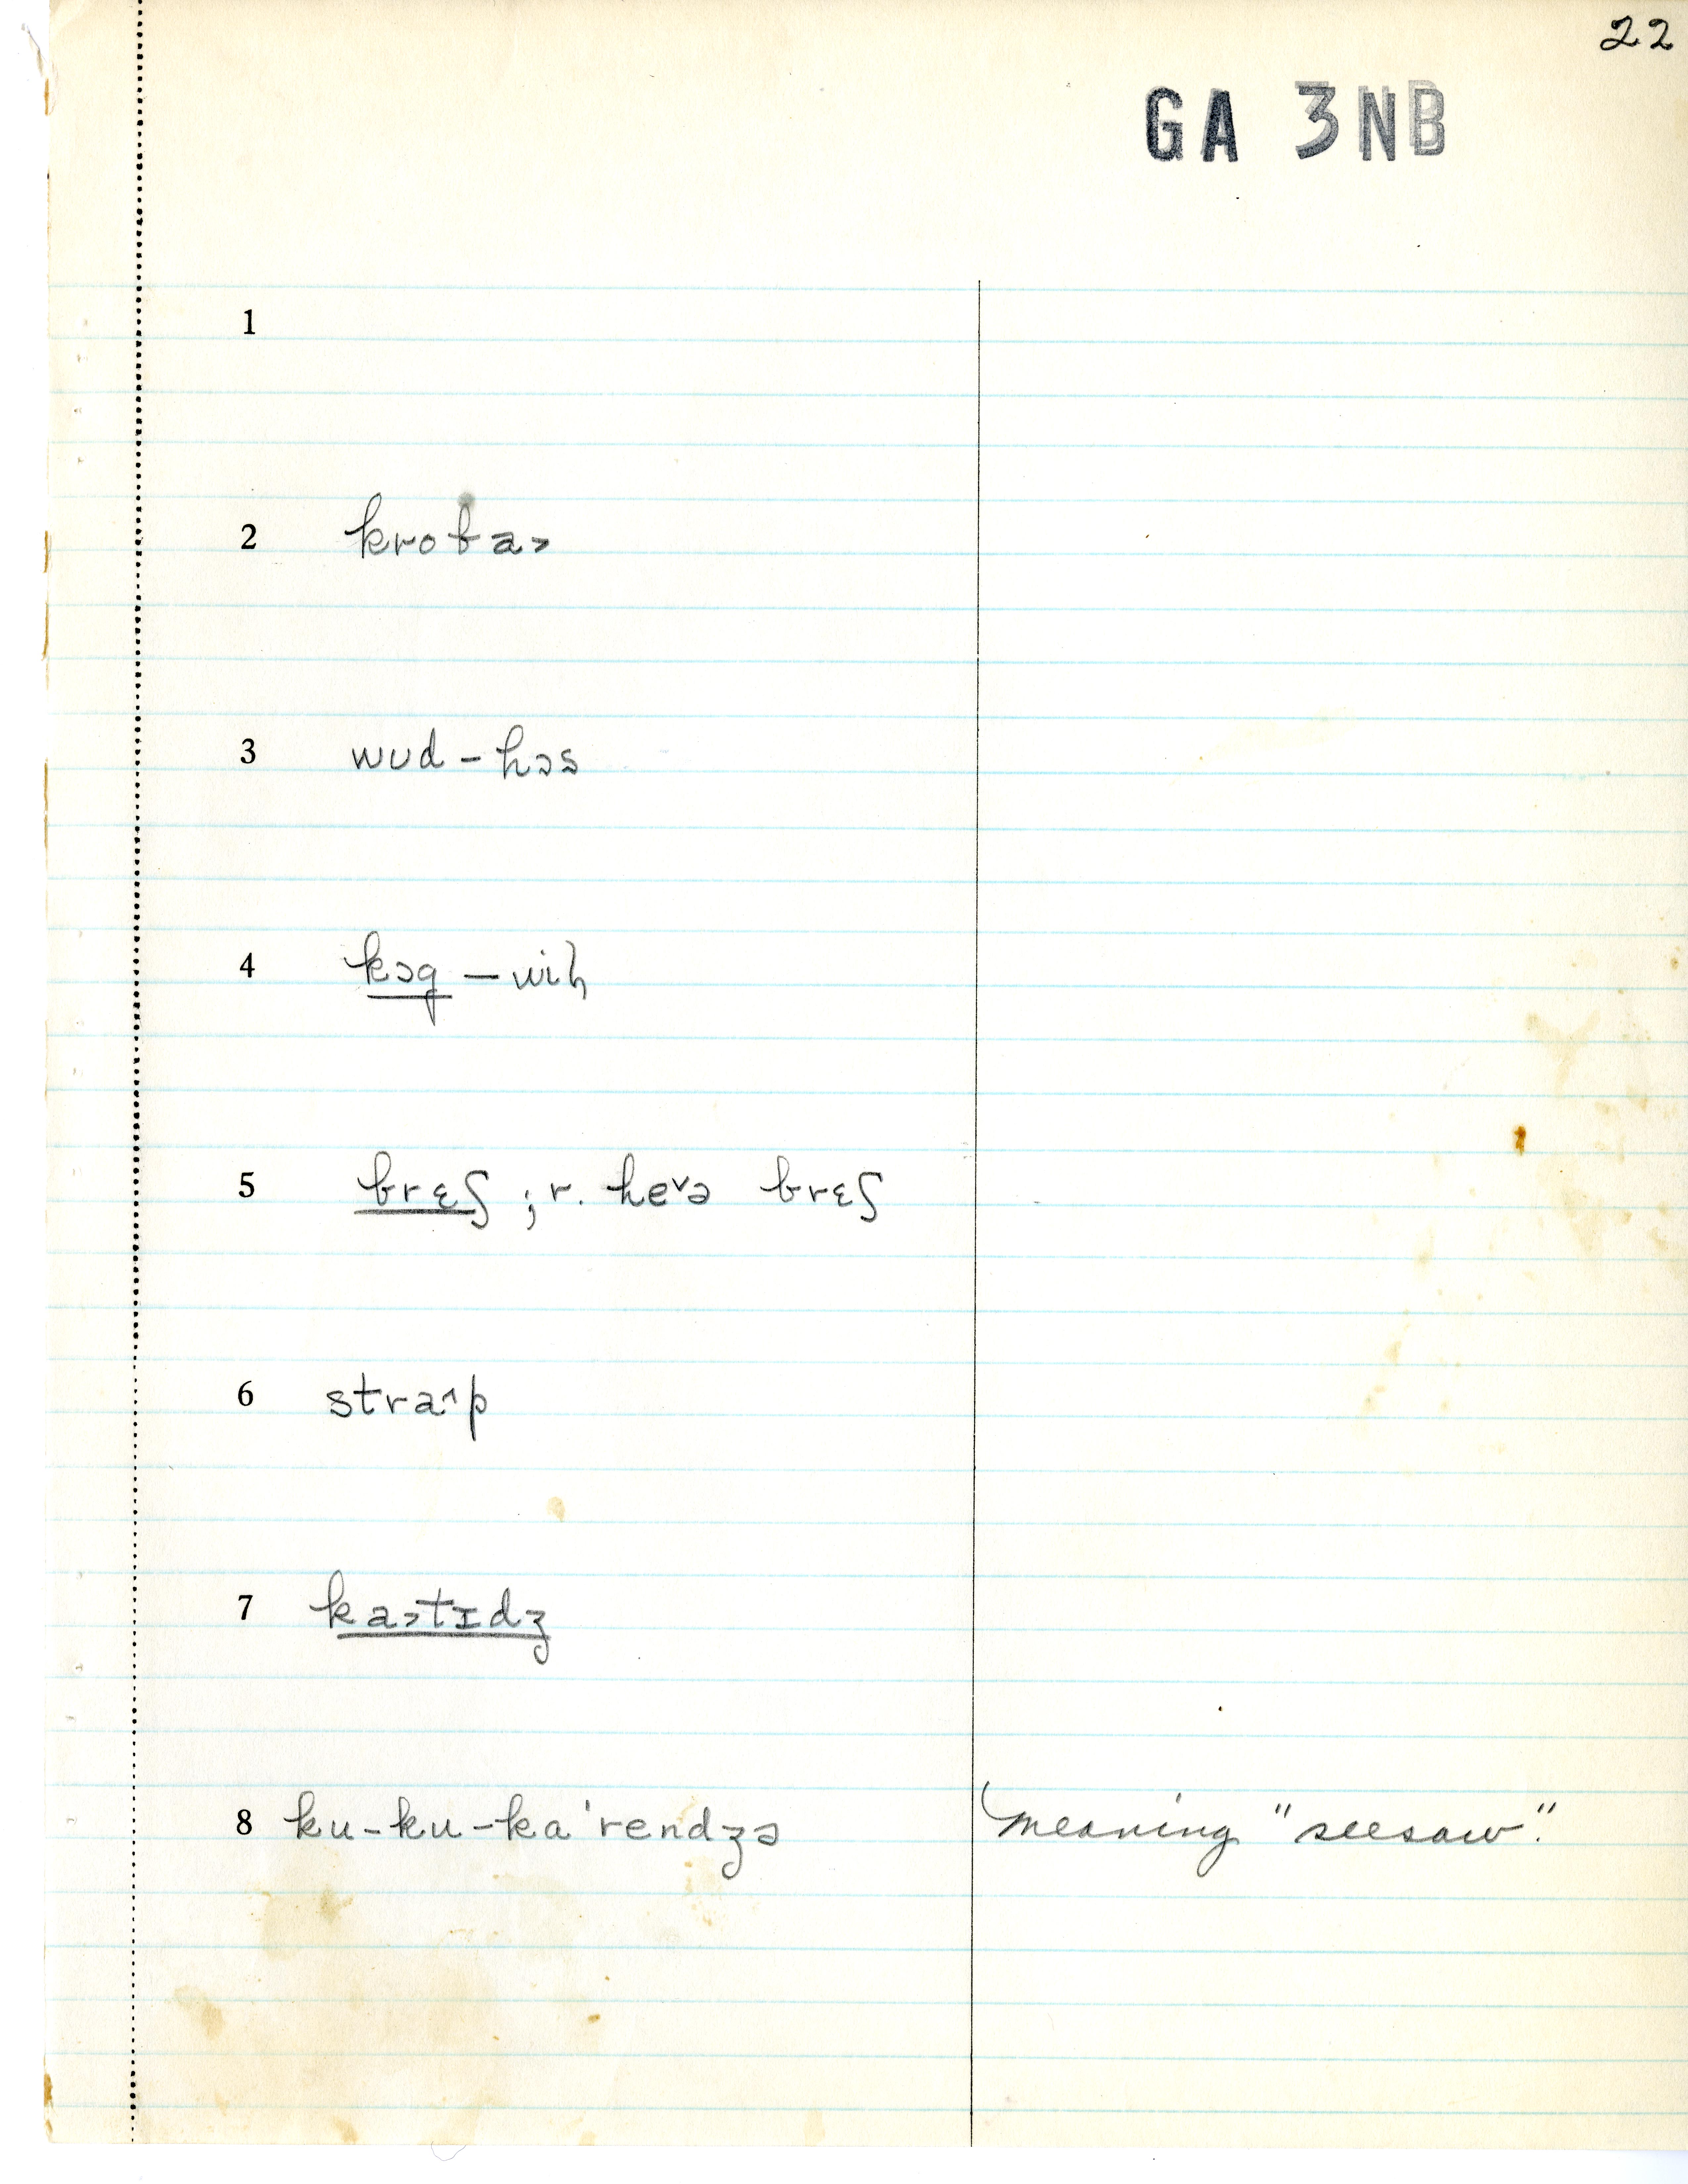 22
GA 3NB
1
2 kroba˃
3 wʊd – hɔs
4 kɔg – wɪl
5 brɛʃ ; r. he˅ə brɛʃ
6 stra˄p
7 ka˃tɪdʒ
8 ku-ku-ka'rendʒə (meaning "seesaw".